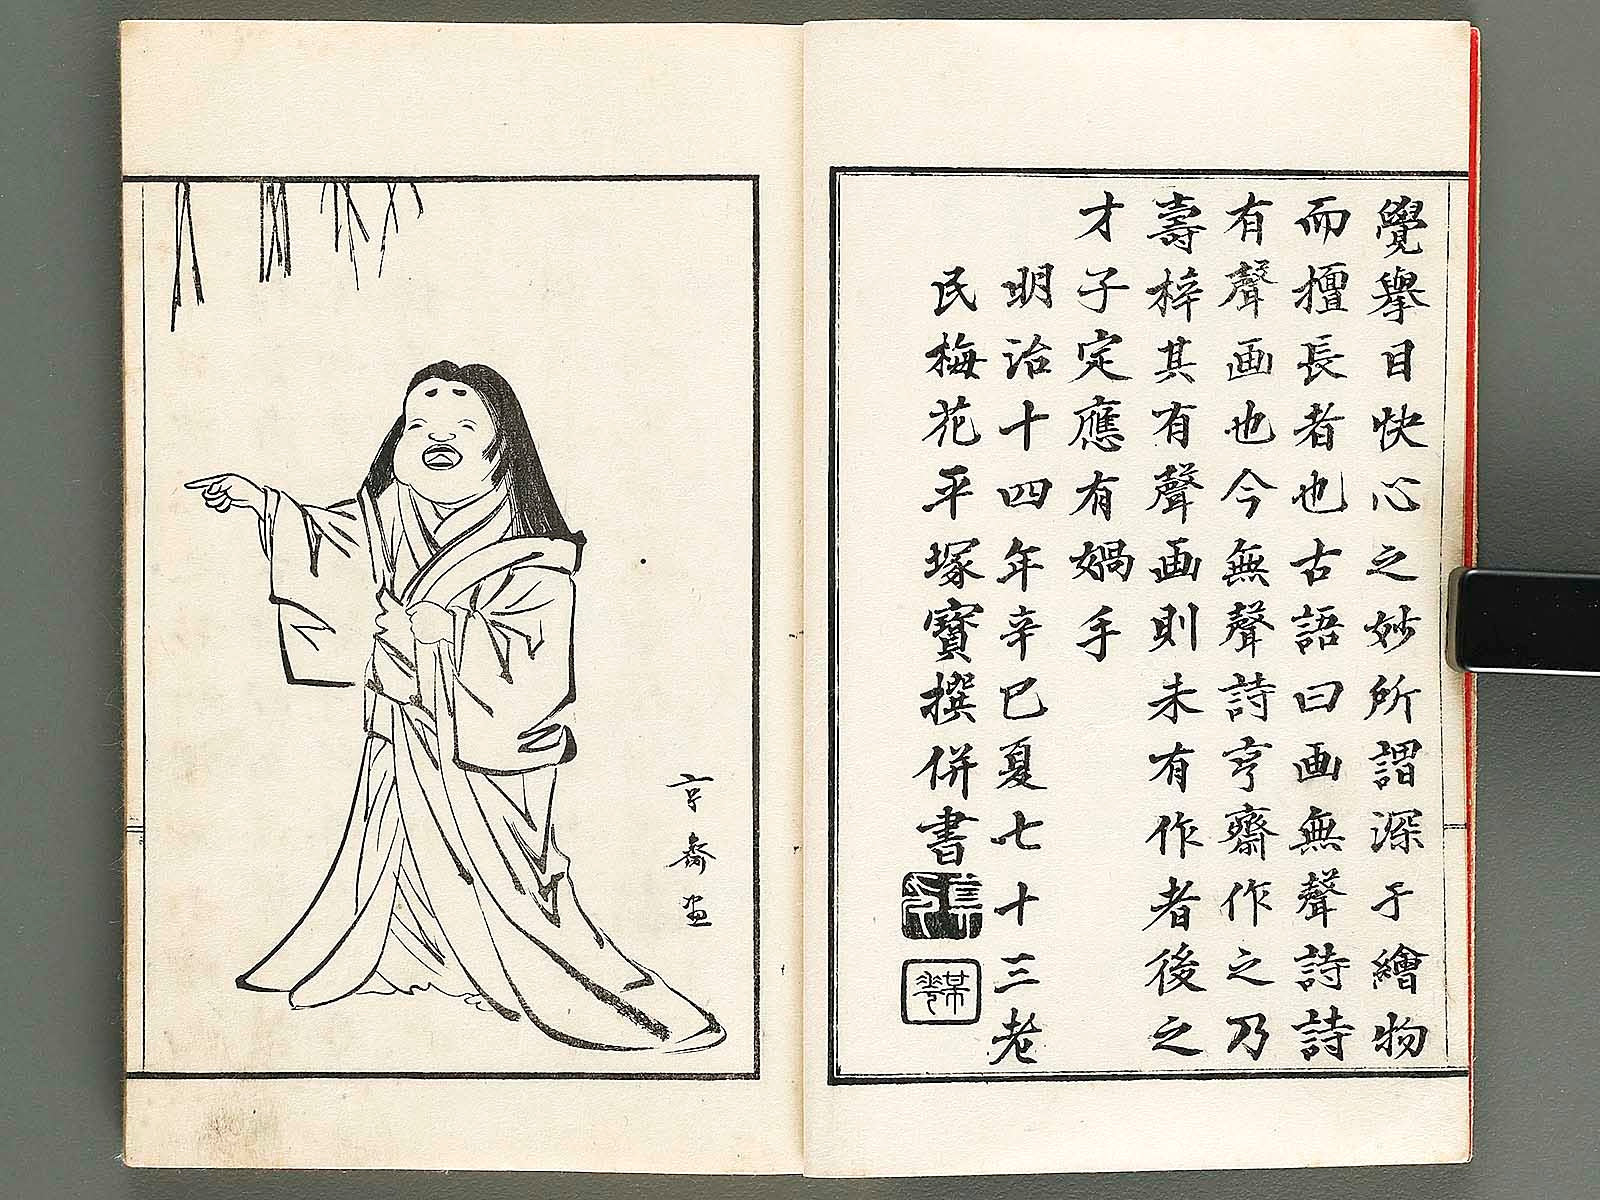 覺舉目快心之妙所謂深于繪物
而擅長者也古語曰画無聲詩詩
有聲画也今無聲詩亨齋作之乃
壽梓其有聲画則未有作者後之
才子定應有媧手
明治十四年辛巳夏七十三老
民梅花平塚寶撰併書
亨齋画